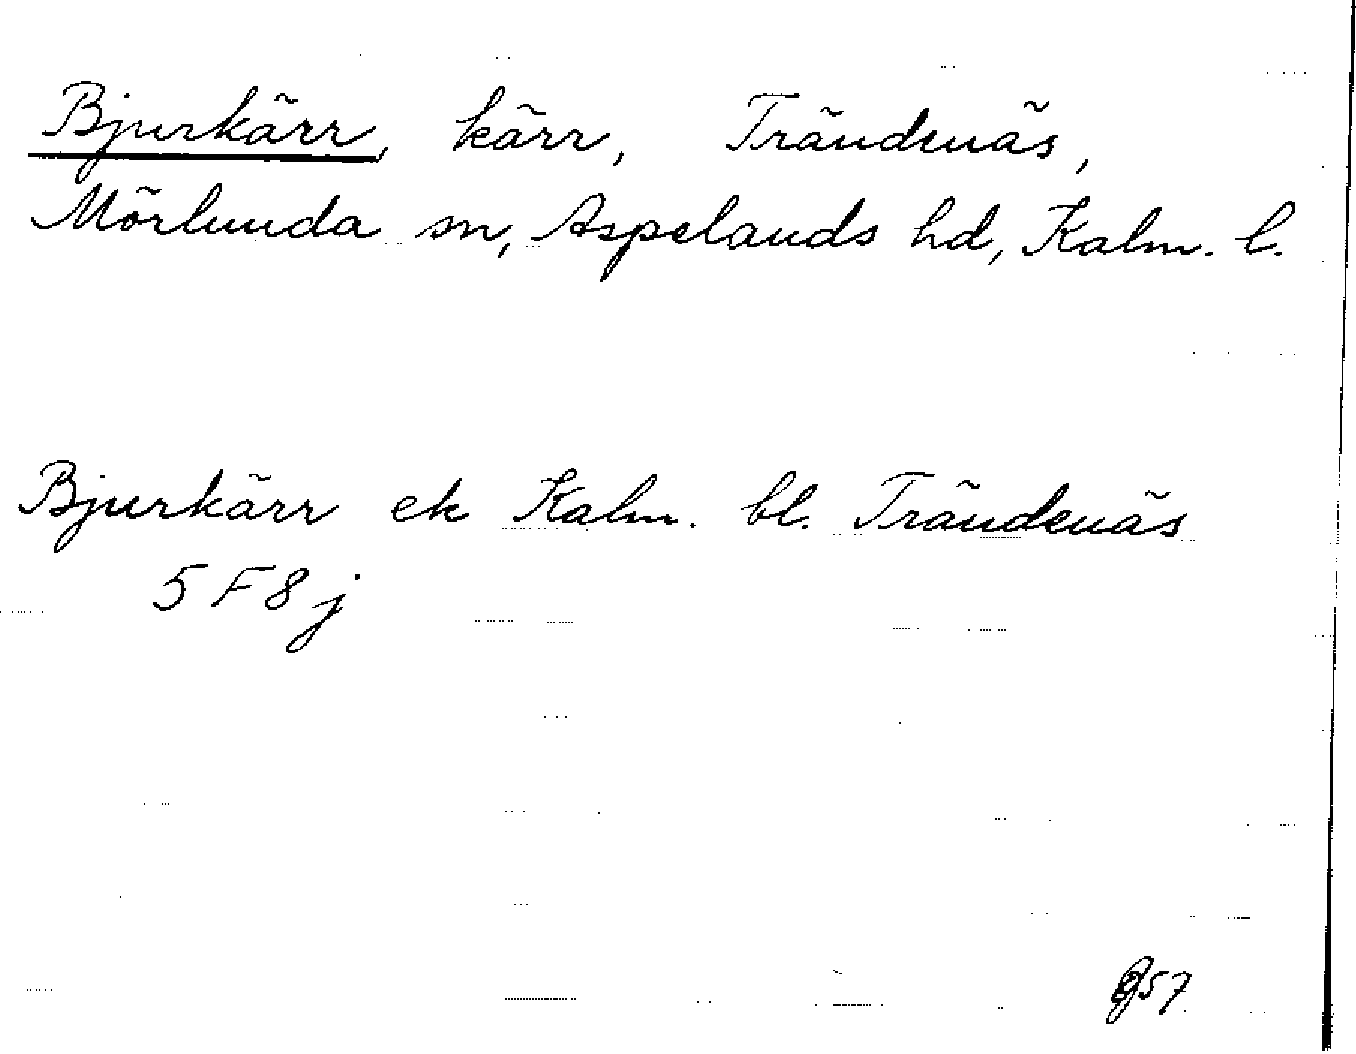 Bjurkärr, kärr, Trändenäs,
Mörlunda sn, Aspelands hd, Kalm. l.
Bjurkärr ek Kalm. bl. Trändenäs
5F8j
57